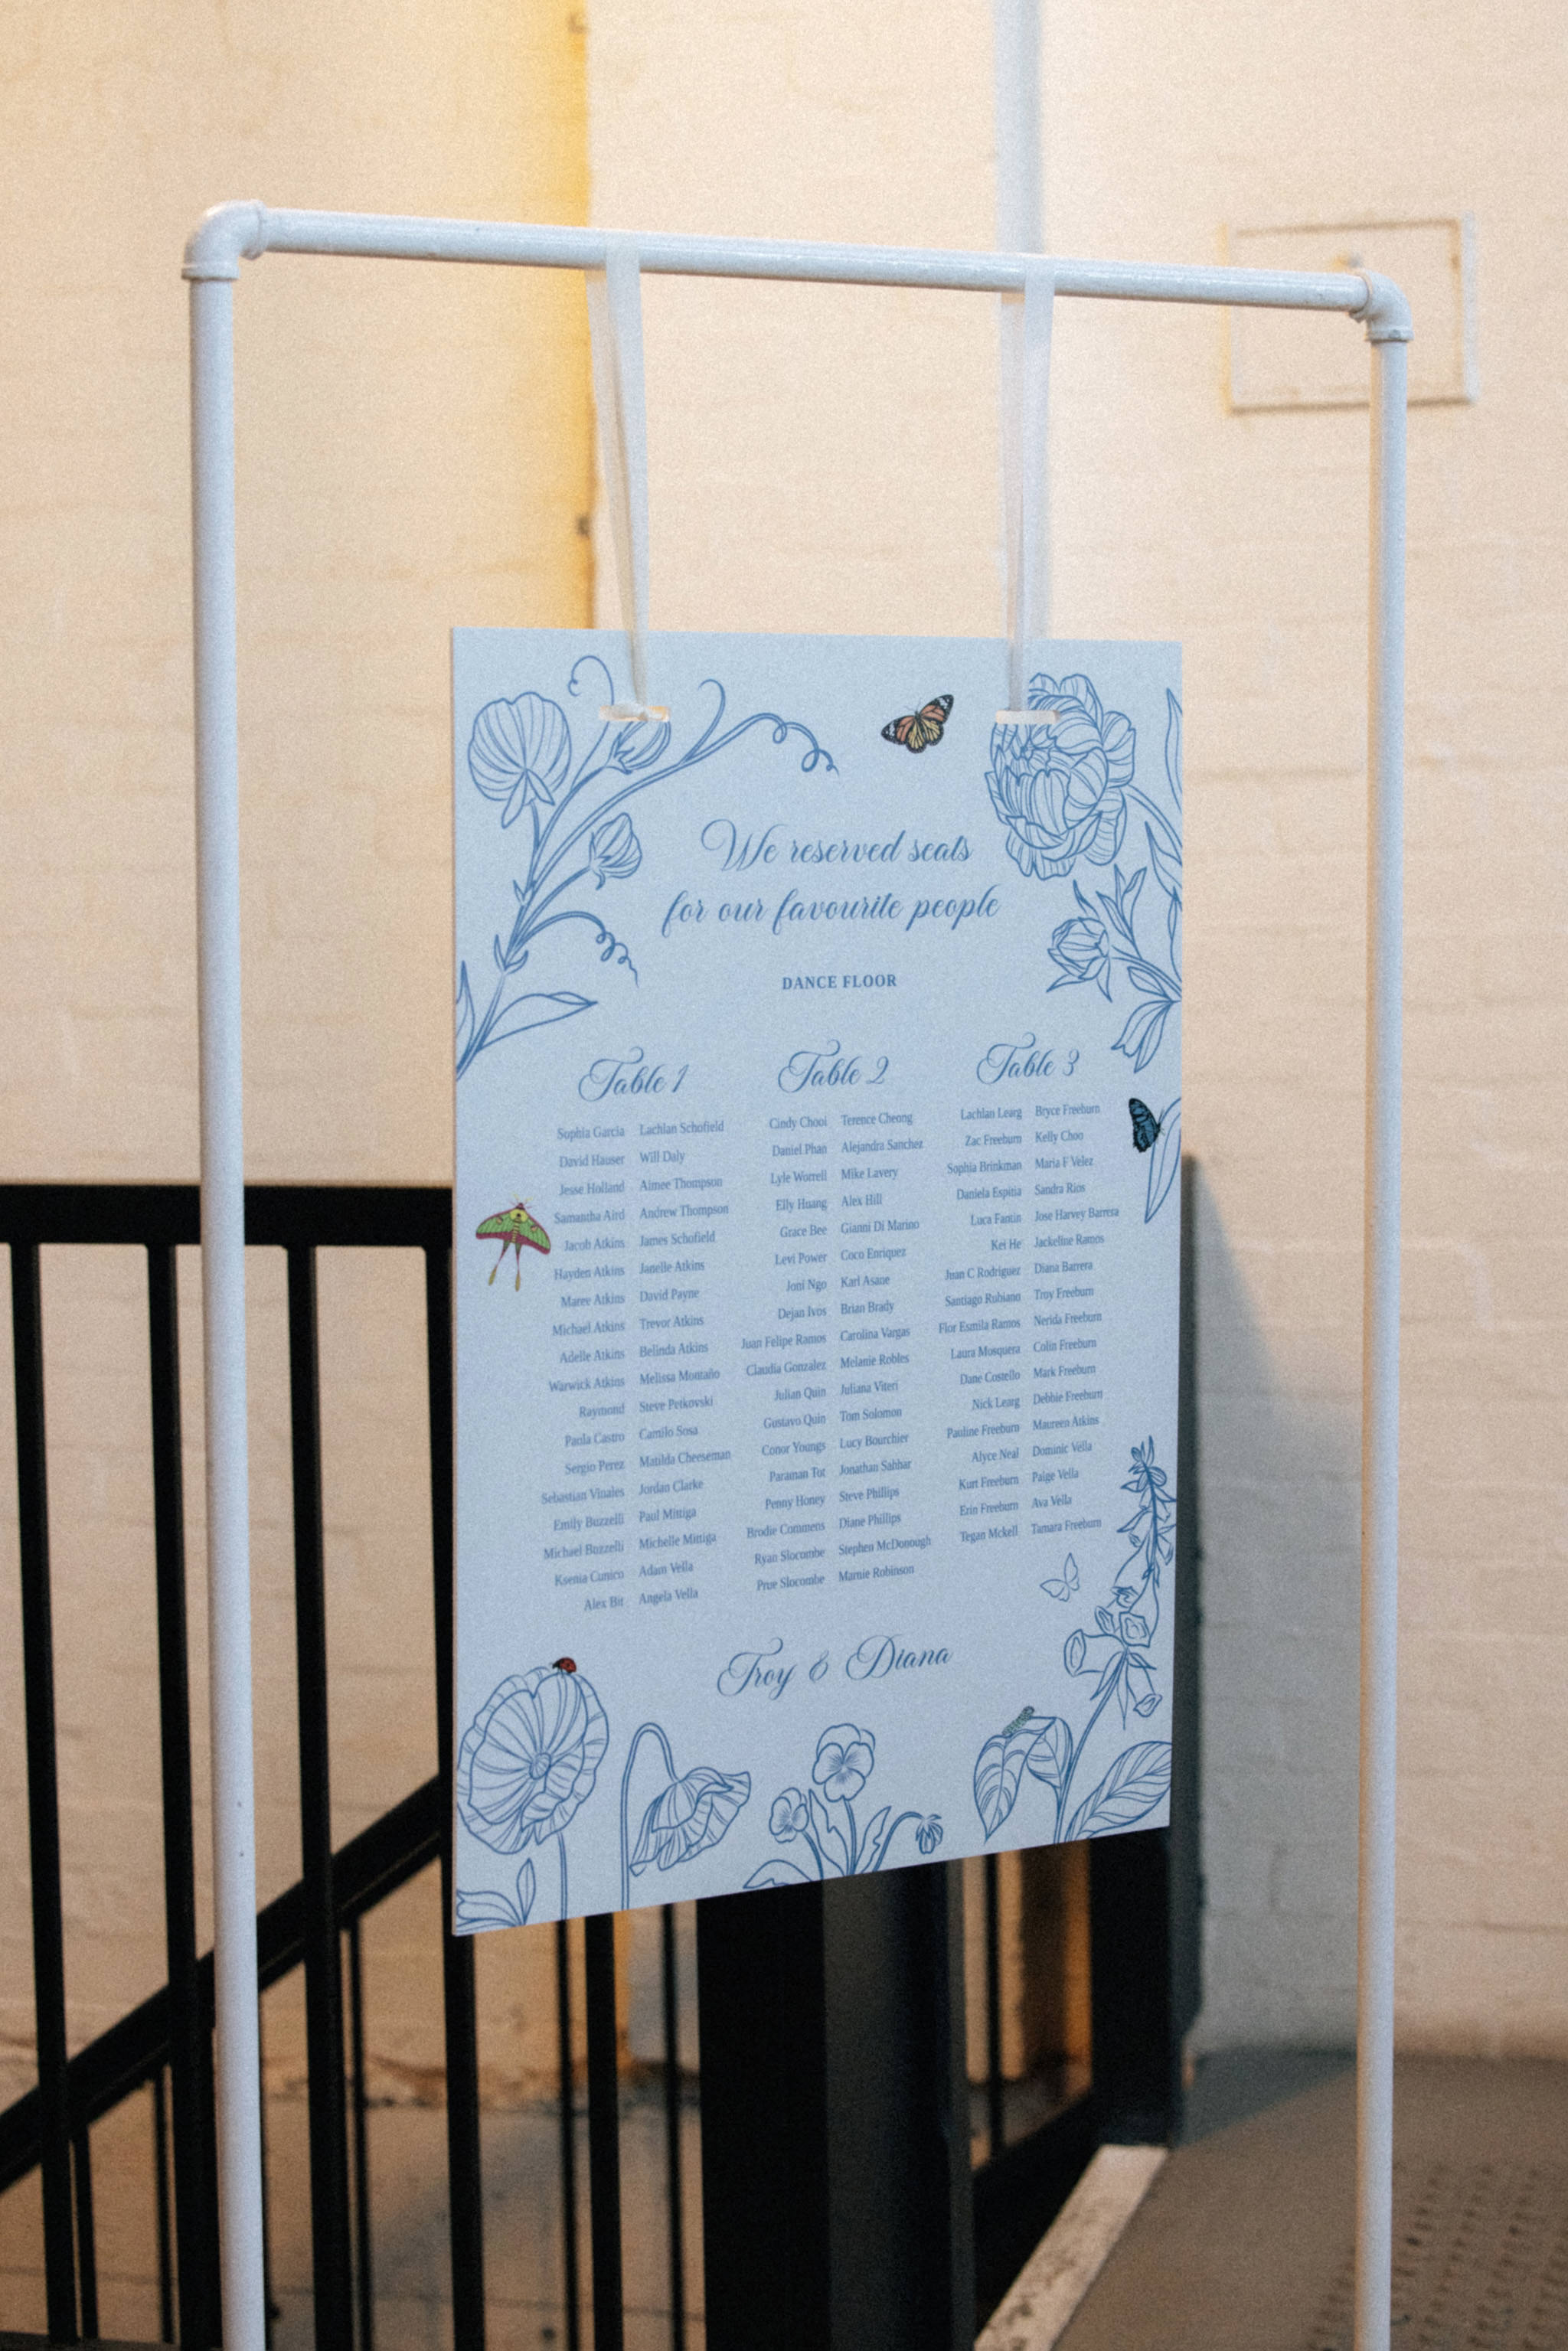 We reserved seats
for our favourite people
DANCE FLOOR
Table 1
Sophia Garcia Lachlan Schofield
David Hauser Will Daly
Jesse Holland Aimee Thompson
Samantha Aird Andrew Thompson
Jacob Atkins James Schofield
Hayden Atkins Janelle Atkins
Maree Atkins David Payne
Michael Atkins Trevor Atkins
Adelle Atkins Belinda Atkins
Warwick Atkins Melissa Montaño
Raymond Steve Petkovski
Paola Castro Camilo Sosa
Sergio Perez Matilda Cheeseman
Sebastian Vinales Jordan Clarke
Emily Buzzelli Paul Mittiga
Michael Buzzelli Michelle Mittiga
Ksenia Cunico Adam Vella
Alex Bit Angela Vella
Table 2
Cindy Chooi Terence Cheong
Daniel Phan Alejandra Sanchez
Lyle Worrell Mike Lavery
Elly Huang Alex Hill
Grace Bee Gianni Di Marino
Levi Power Coco Enriquez
Joni Ngo Karl Asane
Dejan Ivos Brian Brady
Juan Felipe Ramos Carolina Vargas
Claudia Gonzalez Melanie Robles
Julian Quin Juliana Viteri
Gustavo Quin Tom Solomon
Conor Youngs Lucy Bourchier
Paraman Tot Jonathan Sahhar
Penny Honey Steve Phillips
Brodie Commens Diane Phillips
Ryan Slocombe Stephen McDonough
Prue Slocombe Marnie Robinson
Table 3
Lachlan Learg Bryce Freeburn
Zac Freeburn Kelly Choo
Sophia Brinkman Maria F Velez
Daniela Espitia Sandra Rios
Luca Fantin Jose Harvey Barrera
Kei He Jackeline Ramos
Juan C Rodriguez Diana Barrera
Santiago Rubiano Troy Freeburn
Flor Esmila Ramos Nerida Freeburn
Laura Mosquera Colin Freeburn
Dane Costello Mark Freeburn
Nick Learg Debbie Freeburn
Pauline Freeburn Maureen Atkins
Alyce Neal Dominic Vella
Kurt Freeburn Paige Vella
Erin Freeburn Ava Vella
Tegan Mckell Tamara Freeburn
Troy & Diana